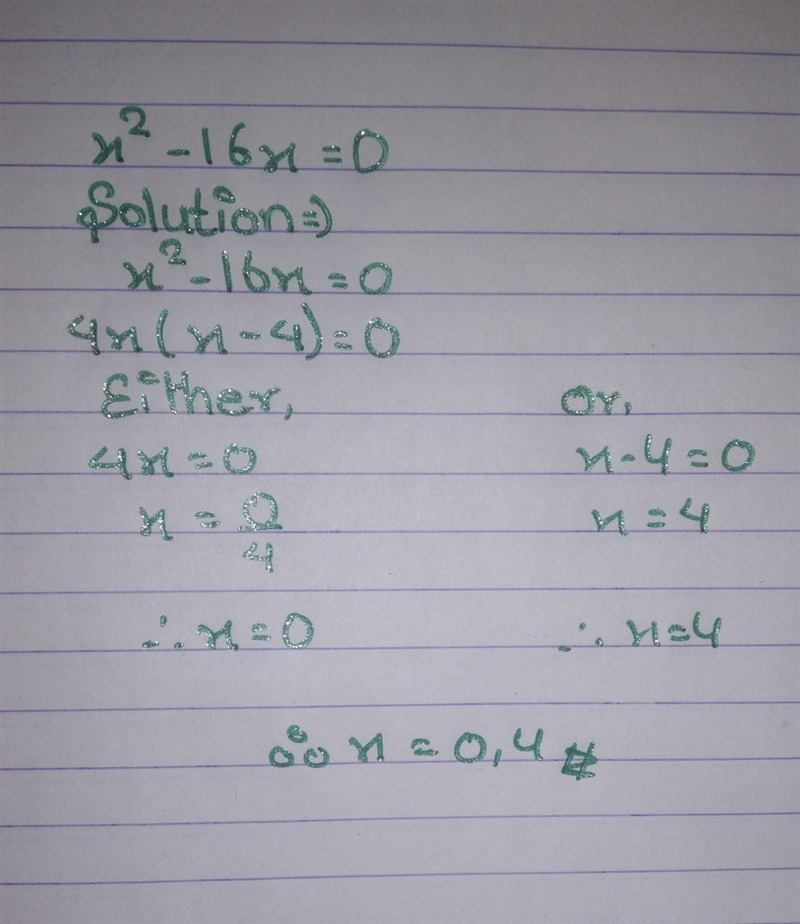 x² - 16x = 0
Solution =)
x² - 16x = 0
4x(x - 4) = 0
Either, Or,
4x = 0 x - 4 = 0
x = 0/4 x = 4
∴ x = 0 ∴ x = 4
∴ x = 0, 4 #